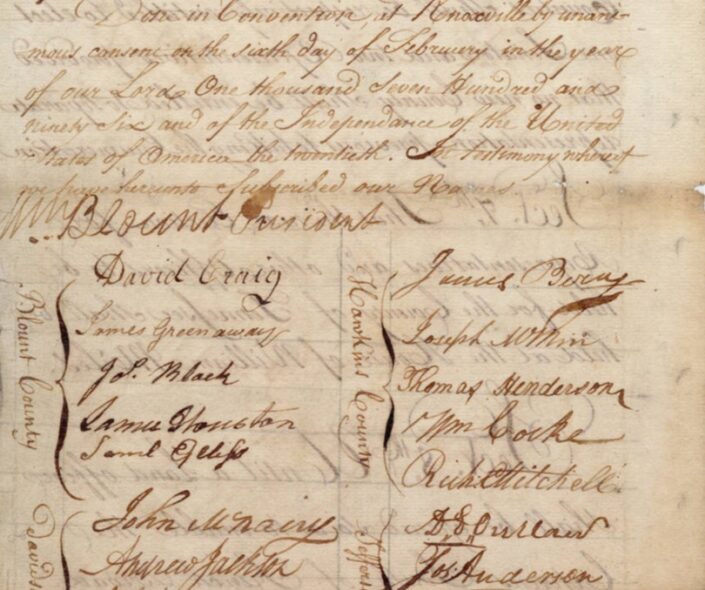 Done in Convention, at Knoxville by unani-
mous consent on the sixth day of Februery in the year
of our Lord One thousand Seven Hundred and
ninety Six and of the Independance of the United
States of America the twentieth. In testimony whereof
we have hereunto Subscribed our Names
Wm Blount President
Blount County
David Craig
James Greenaway
Jos. Black
Samue Houston
Saml Glass
Davids
John McNairy
Andrew Jackson
Hawkins County
James Berry
Joseph McMin
Thomas Henderson
Wm Cocke
Richd Mitchell
Jeffers
A. Outlaw
Jos Anderson